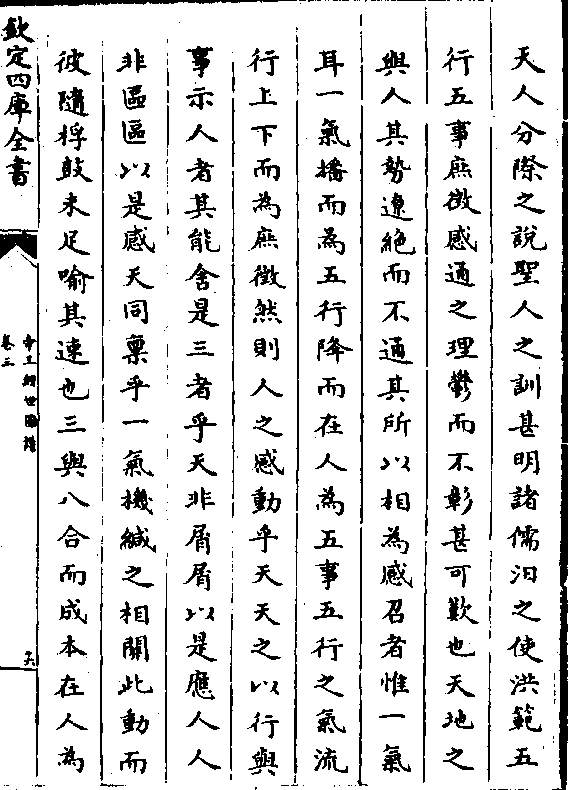 天人分際之說聖人之訓甚明諸儒汨之使洪範五
行五事庶徴感通之理鬱而不彰甚可歎也天地之
與人其勢遼絶而不通其所以相為感召者惟一氣
耳一氣播而為五行降而在人為五事五行之氣流
行上下而為庶徴然則人之感動乎天天之以行與
事示人者其能舍是三者乎天非屑屑以是應人人
非區區以是感天同稟乎一氣機緘之相關此動而
彼隨桴鼓未足喻其速也三與八合而成木在人為
欽定四庫全書
帝王經世圖譜
卷三